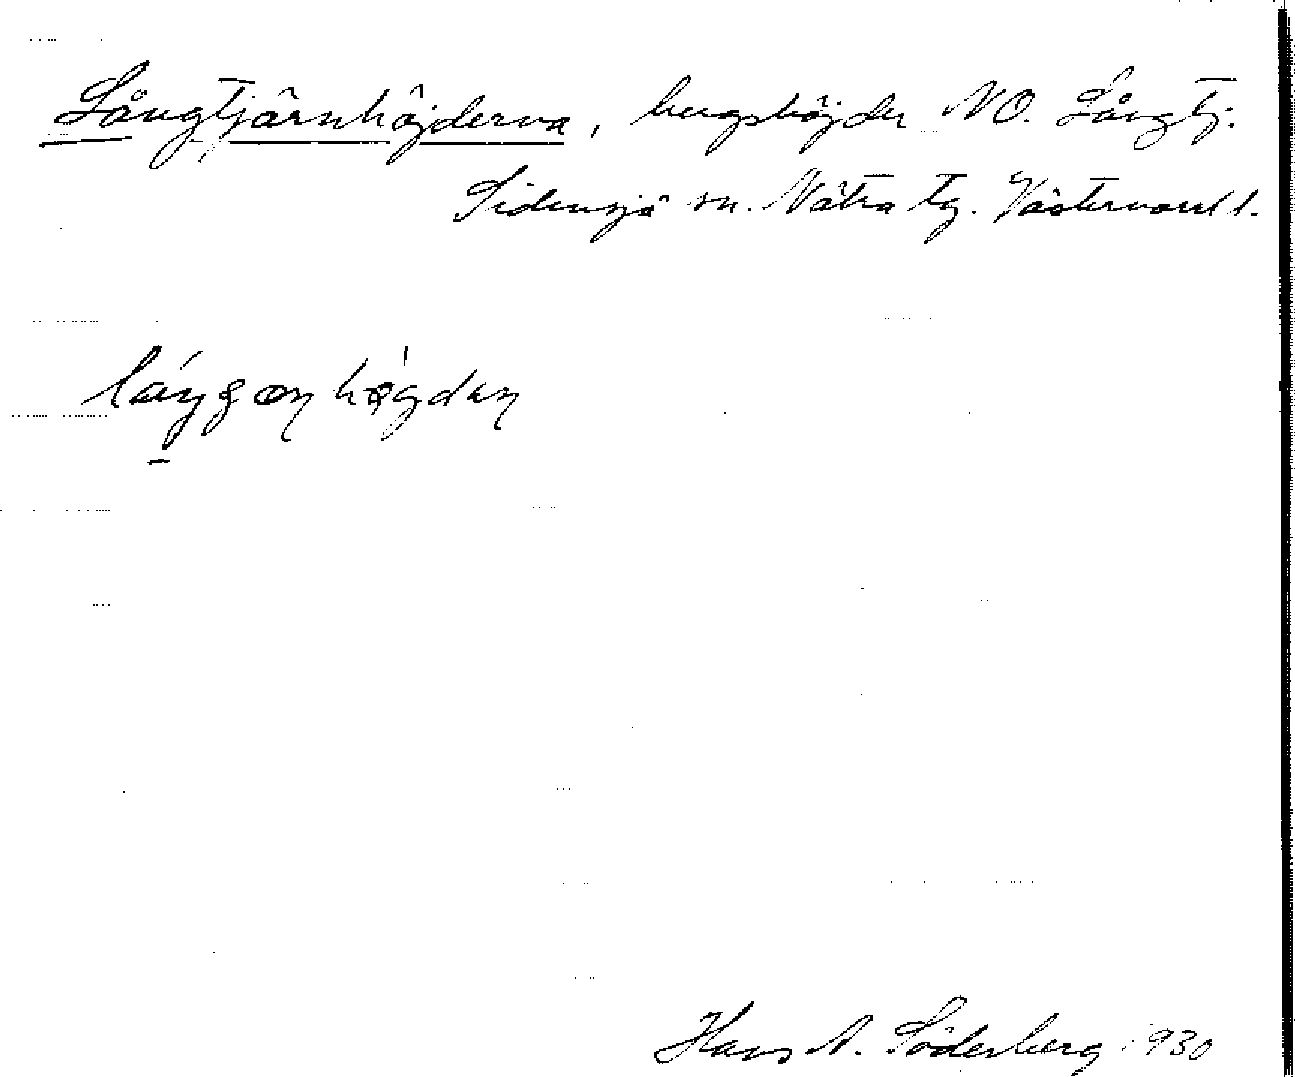 Långtjärnhöjderna, bergshöjder NO. Långtj.
Sidensjö sn. Nätra tg. Västernorrl l.
Hans A. Söderberg 1930